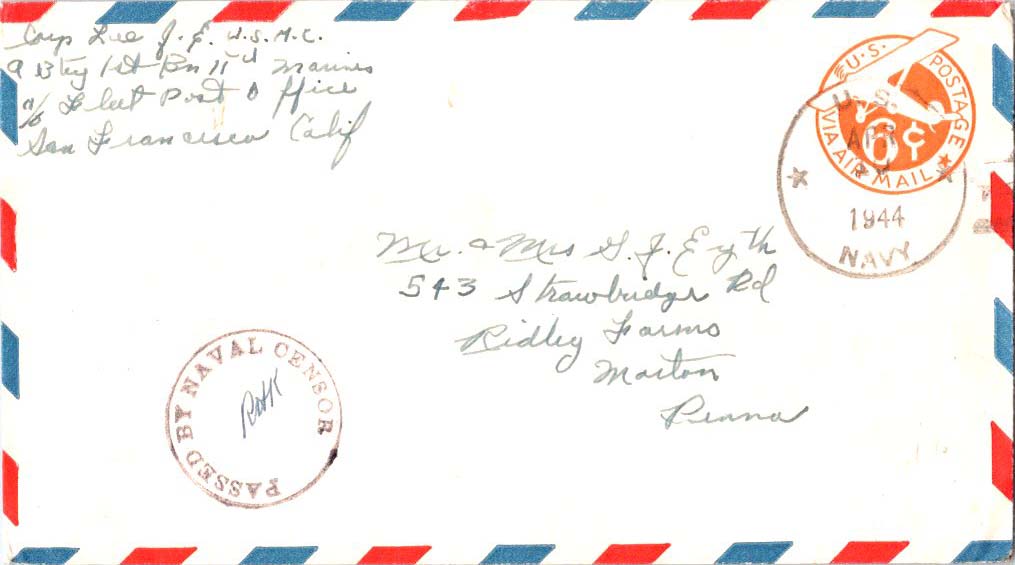 Corp Lee J. E. U.S.M.C.
Bty 1st Bn 11th Marines
c/o Fleet Post Office
San Francisco Calif
U.S. POSTAGE
VIA AIR MAIL
6¢
U.S.
APR
1944
NAVY
Mr. & Mrs G. J. Eryth
543 Strawbridge Rd
Ridley Farms
Morton
Penna
PASSED BY NAVAL CENSOR
RHK